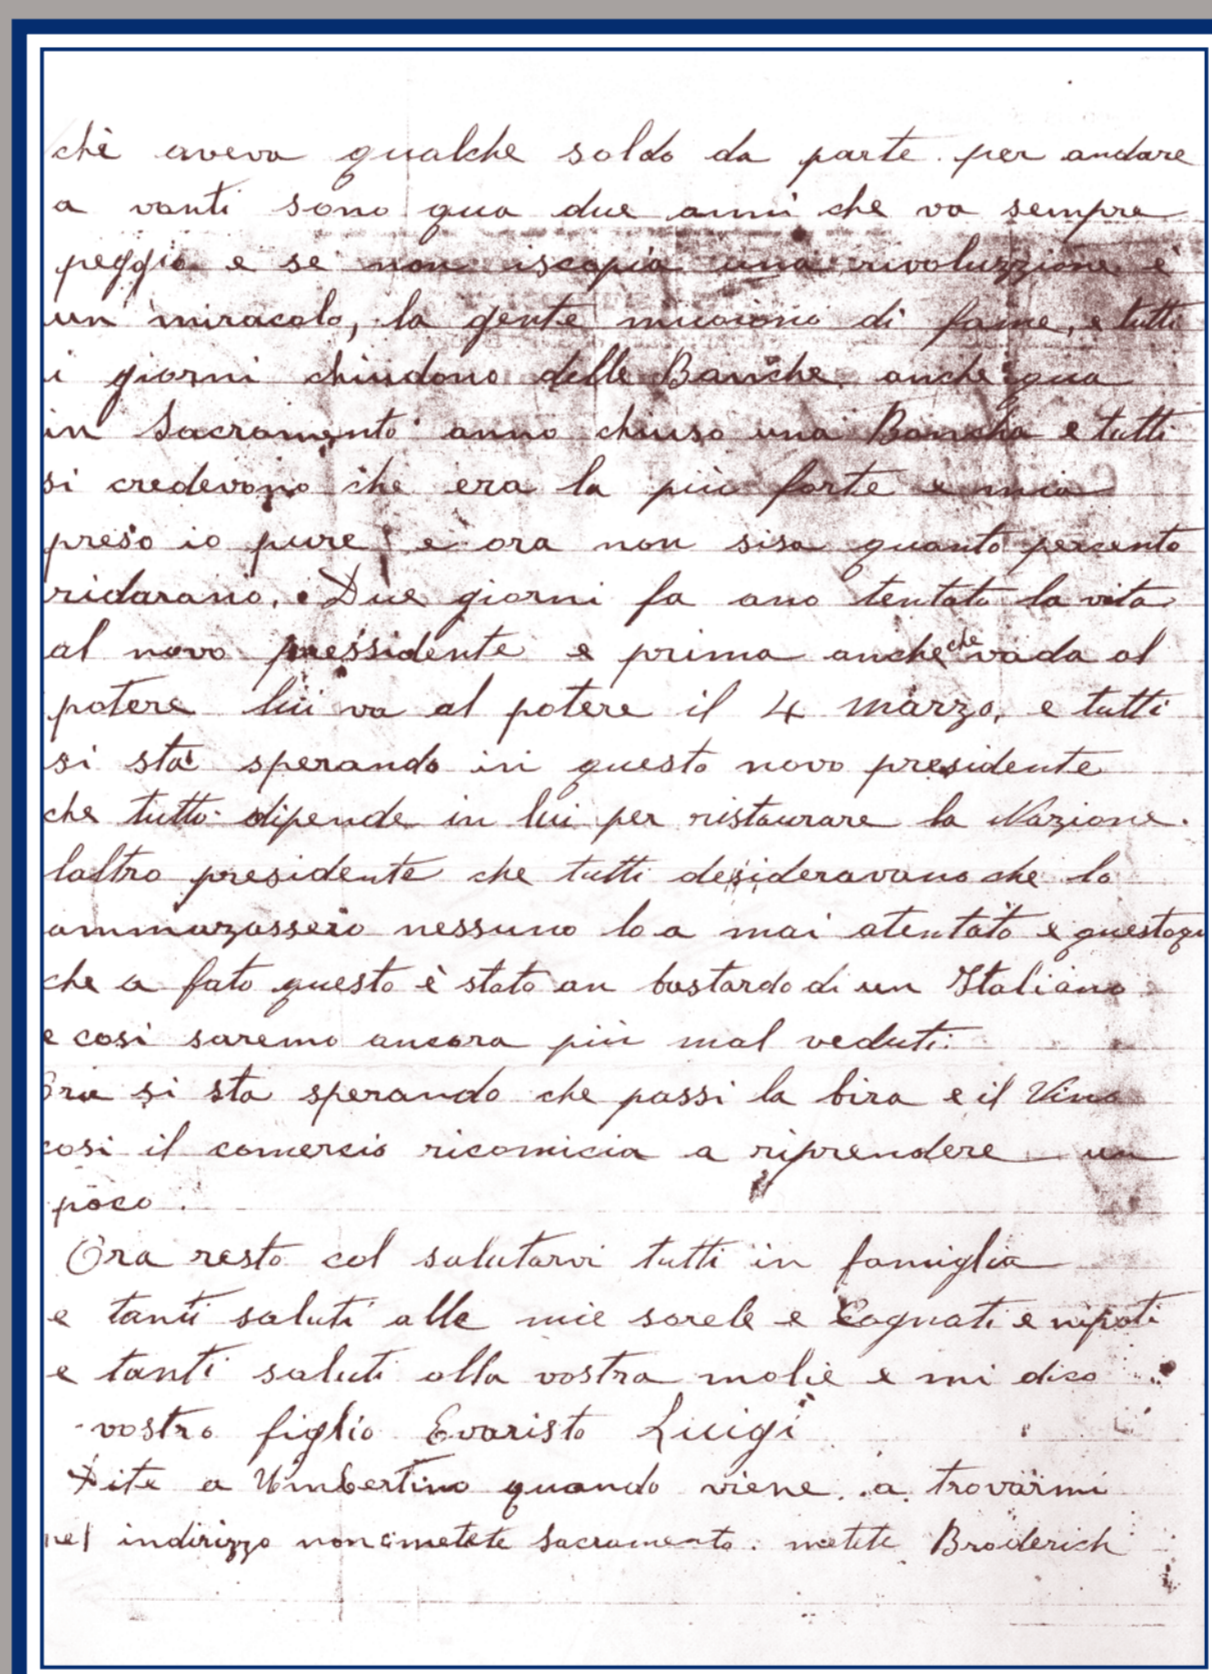 chè aveva qualche soldo da parte per andare
a vanti sono qua due anni che va sempre
peggio e se non iscopia una rivoluzzione è
un miracolo, la gente muoiono di fame, e tutti
i giorni chiudono delle Banche anche qua
in Sacramento anno chiuso una Bancha e tutti
si credevono che era la più forte e mia
preso io pure e ora non sisa quanto percento
ridarano. Due giorni fa ano tentato la vita
al novo pressidente e prima anche che vada al
potere lui va al potere il 4 marzo, e tutti
si sta sperando in questo novo presidente
che tutto dipende in lui per ristaurare la Nazione.
laltro presidente che tutti desideravano che lo
ammazassero nessuno lo a mai atentato e questo
che a fato questo è stato un bastardo di un Italiano
e cosi saremo ancora più mal veduti.
Ora si sta sperando che passi la bira e il Vino
cosi il comercio ricomicia a riprendere un
poco.
Ora resto col salutarvi tutti in famiglia
e tanti saluti alle mie sorele e Cognati e nipoti
e tanti saluti alla vostra molie e mi dico
vostro figlio Evaristo Luigi
Dite a Umbertino quando viene a trovarmi
nel indirizzo non metete Sacramento. metete Broderich